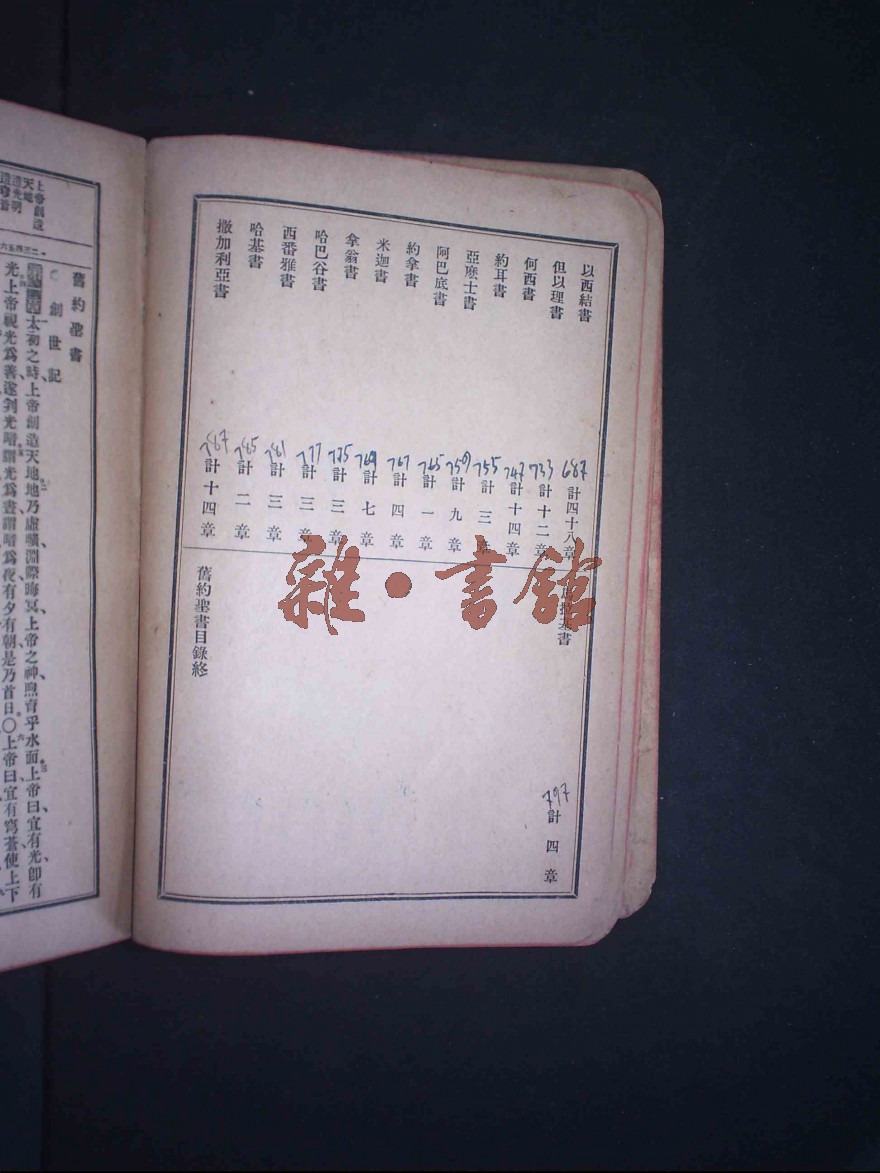 以西結書 687 計四十八章
但以理書 733 計十二章
何西書 747 計十四章
約耳書 755 計三章
亞麽士書 759 計九章
阿巴底書 765 計一章
約拿書 767 計四章
米迦書 769 計七章
拿翁書 775 計三章
哈巴谷書 777 計三章
西番雅書 781 計三章
哈基書 785 計二章
撒加利亞書 787 計十四章
書 797 計四章
舊約聖書目錄終
雜·書館
上帝創造
天地
造光明
舊約聖書
創世記
太初之時上帝創造天地地乃虛曠淵際晦冥上帝之神煦育乎水面上帝曰宜有光卽有
光上帝視光爲善遂判光暗謂光爲晝謂暗爲夜有夕有朝是乃首日〇上帝曰宜有穹蒼使上下